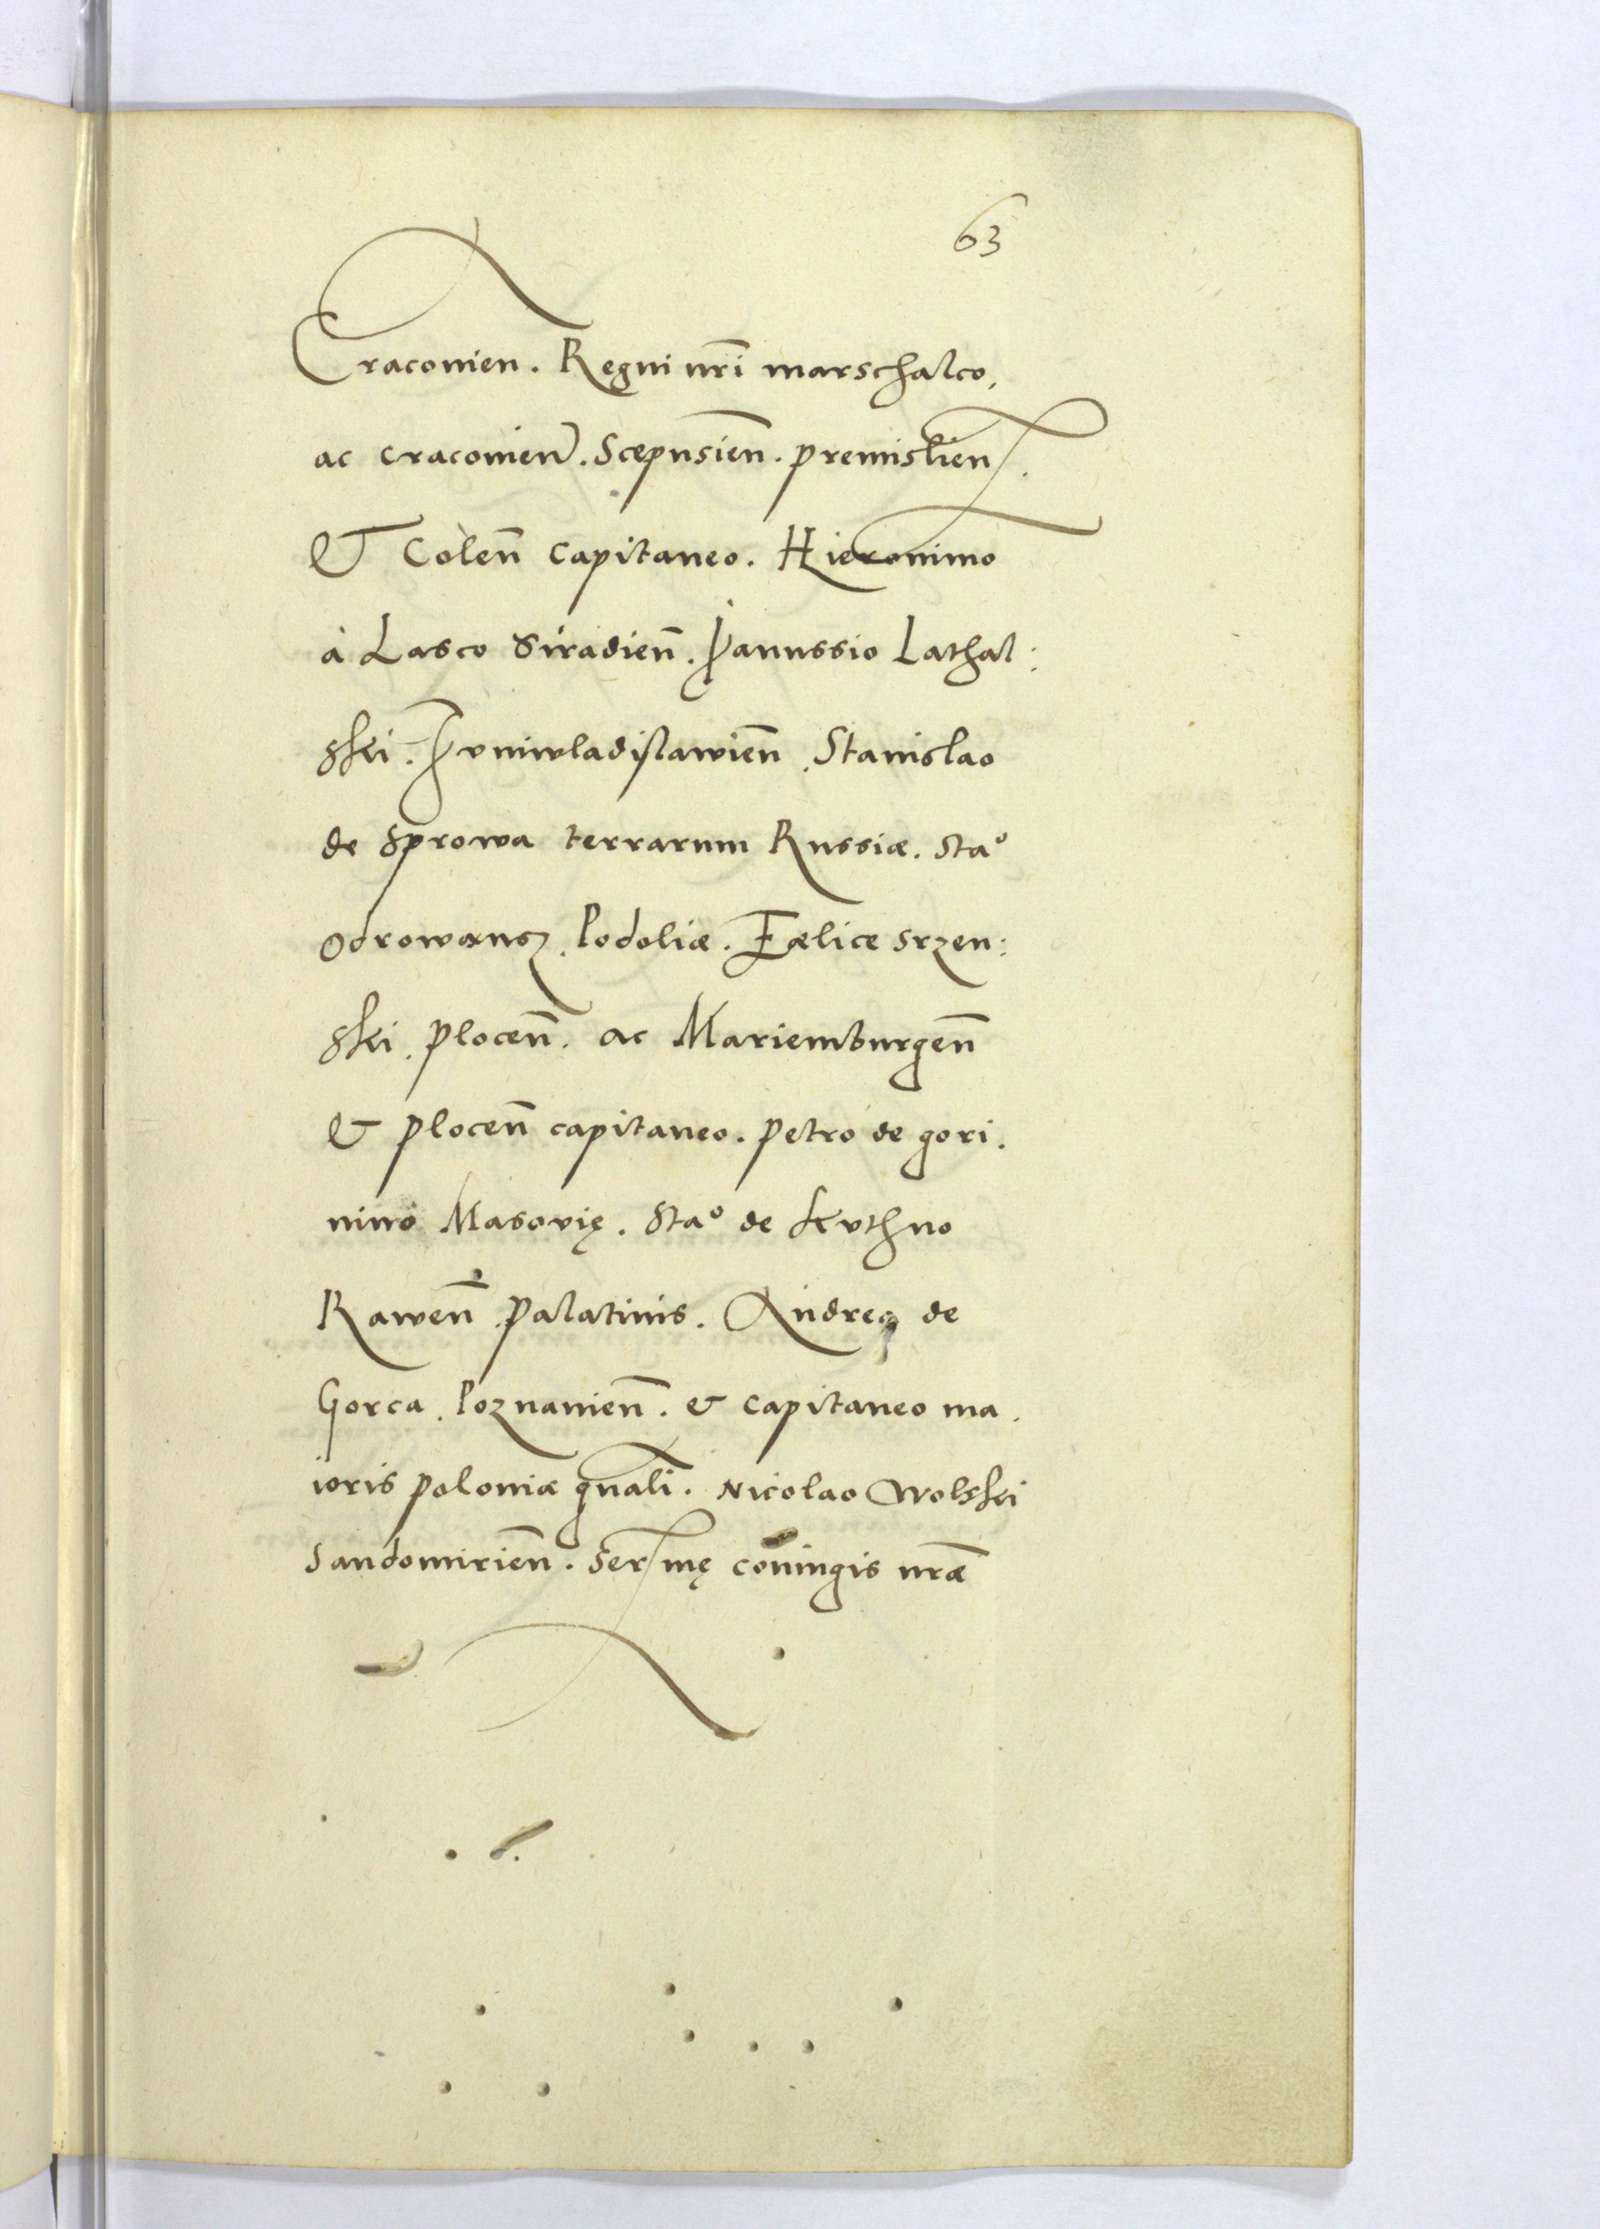 63
Craconien. Regni nr̄i marschalco,
ac craconien. Scepusień. premislien.
& Coleñ capitaneo. Hieronimo
à Lasco Siradień. Janussio Lathal:
ski. Juniwladislawień. Stanislao
de Sprowa terrarum Russiæ. Staº
Odrowansz. Podoliæ. Fælice srzen:
ski. ploceñ. ac Mariemburgeñ
& ploceñ capitaneo. petro de gori.
nino Masovię. Staº de Kuthno
Raweñ. palatinis. Andreę de
Gorca. Poznanień. & capitaneo ma.
ioris poloniæ gnāli. Nicolao Wolski
Sandomirień. Serᵐę coniugis nr̄æ